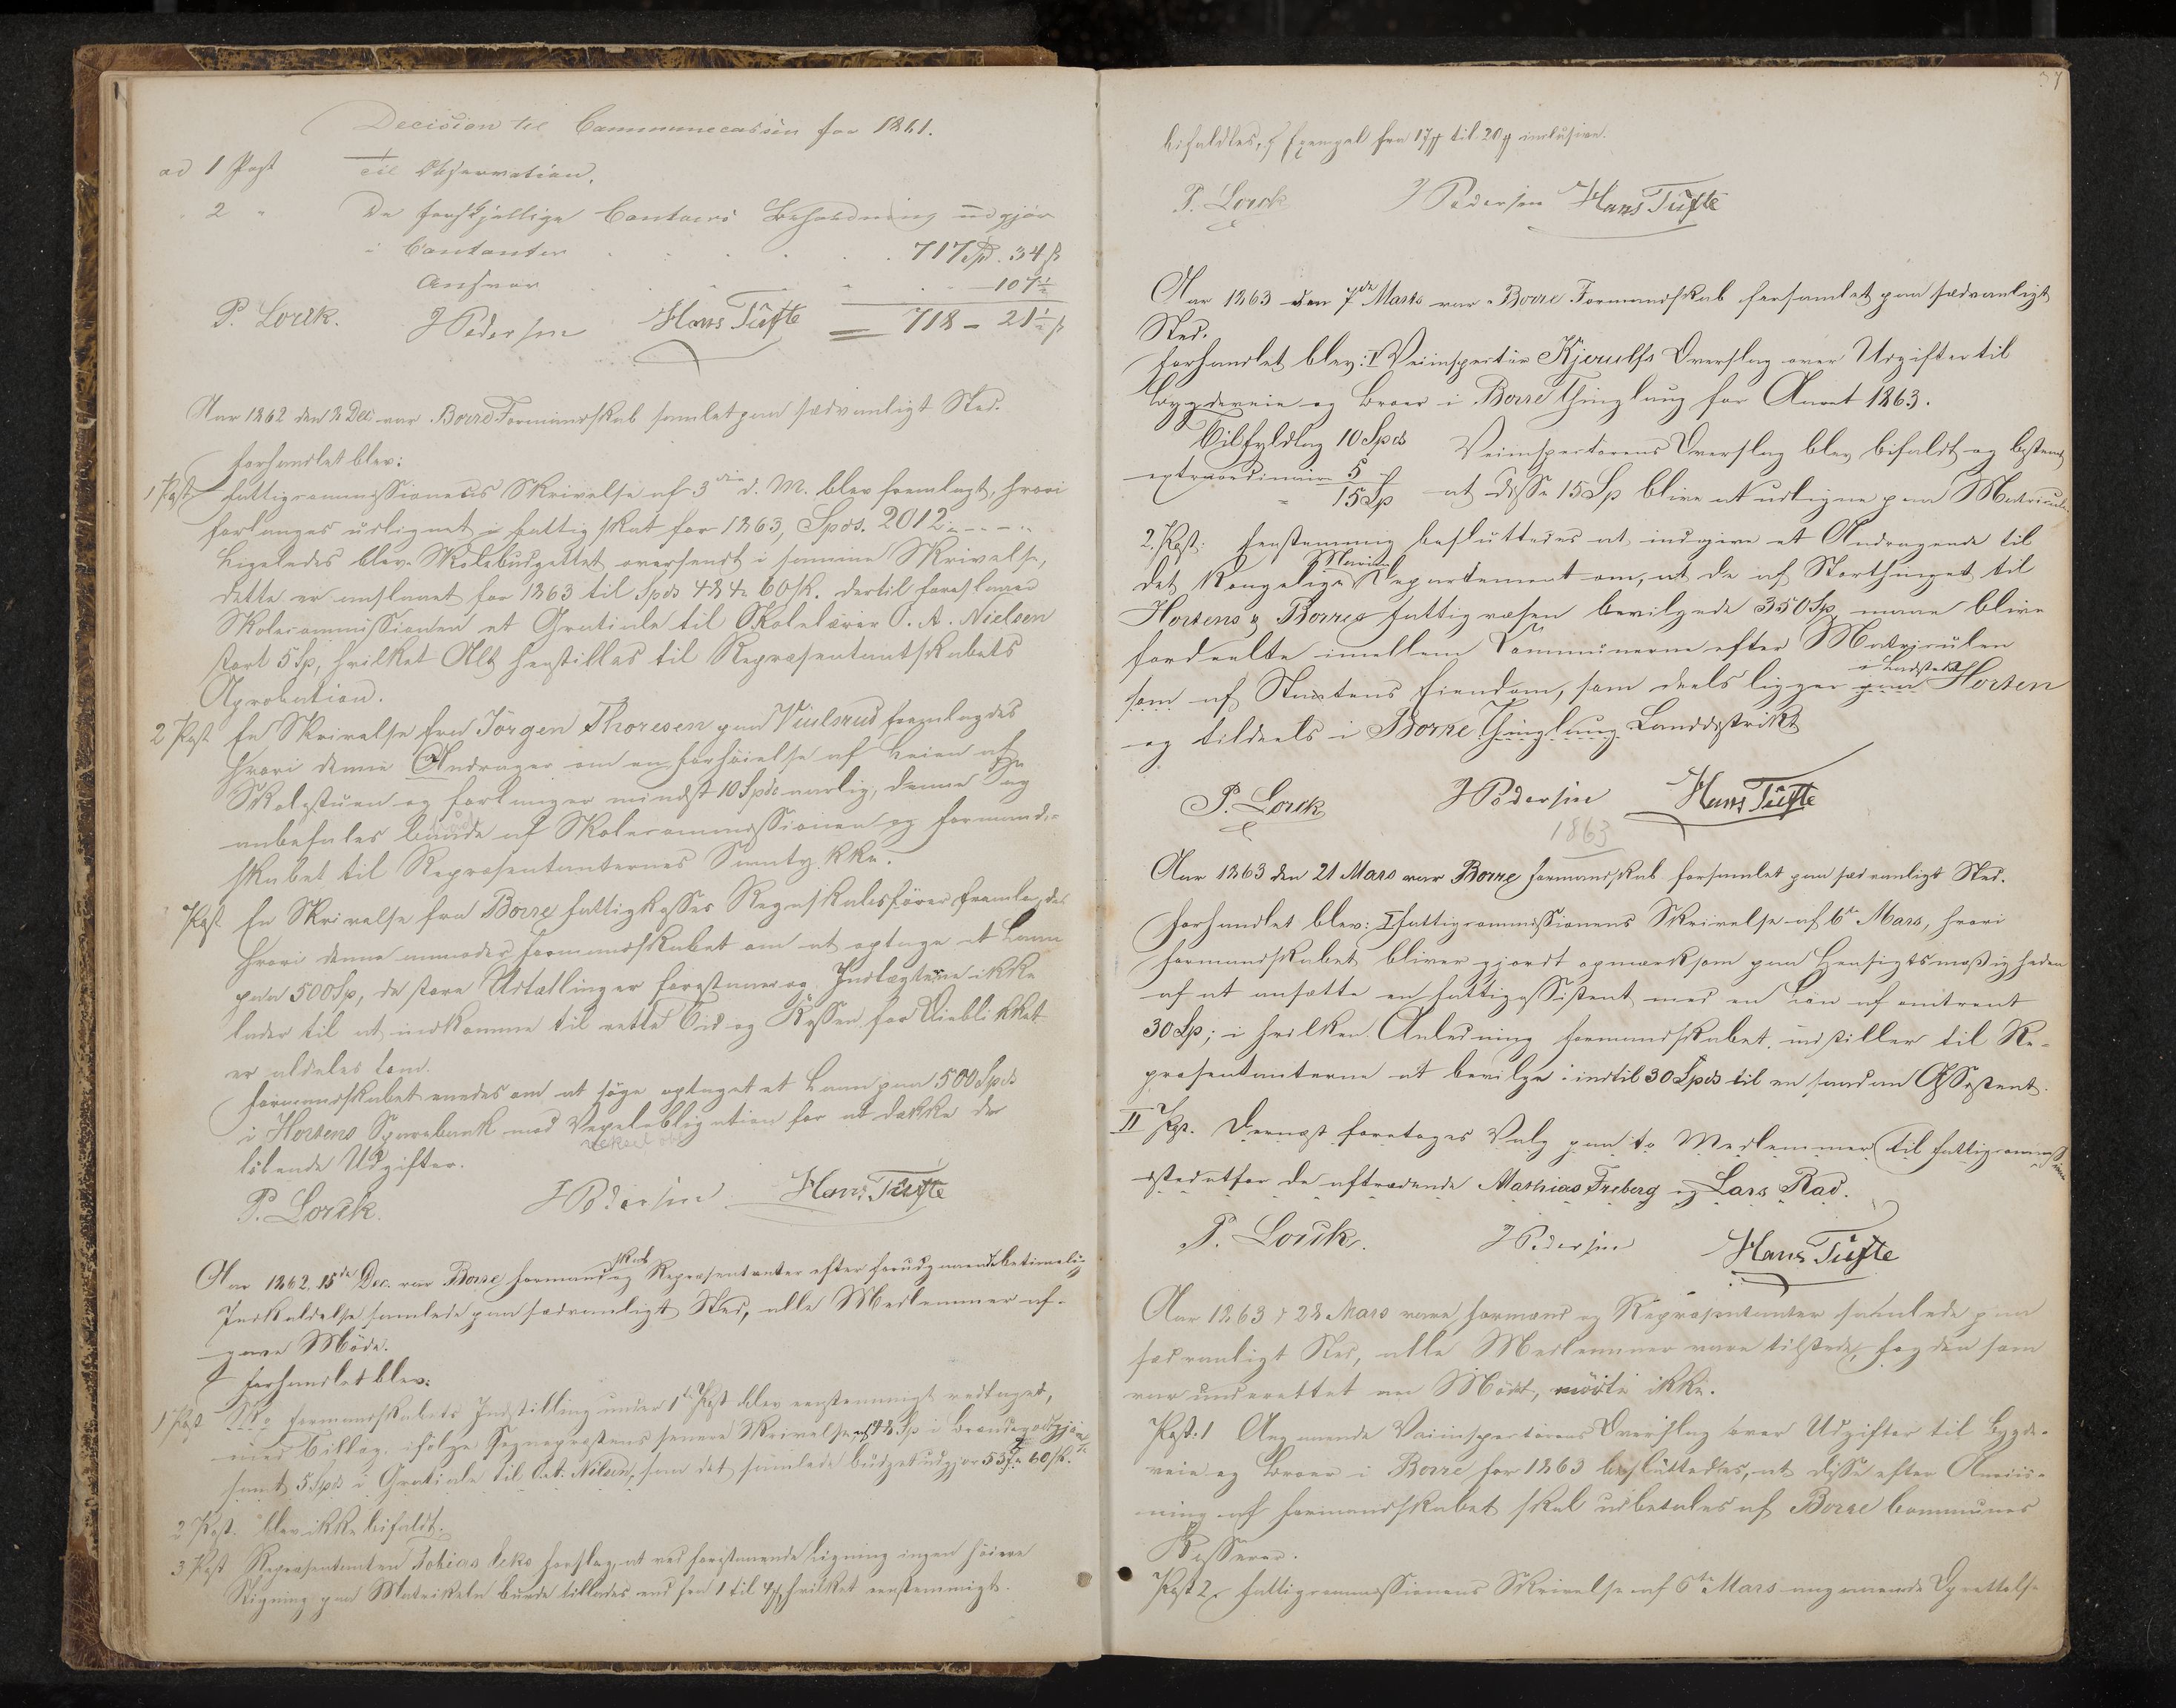 Decision til Communecassen for 1861.
ad 1 Post Til Observation.
2 " De forskjellige Contoers Beholdning udgjør
i Contanter 717 Spd. 34 ß
Ansvar 107½
P. Lorck. J Pedersen Hans Tufte 718 - 21½ ß
Aar 1862 den Dec. var Borre Formandskab samlet paa sædvanligt Sted.
Forhandlet blev:
1 Post Fattigcommissionens Skrivelse af 3die d. M. blev fremlagt, hvori
forlanges udlignet i Fattigskat for 1863, Spds. 2012 - -
Ligeledes blev Skolebudgettet oversendt i samme Skrivelse,
dette er anslaaet for 1863 til Spds 484 60 sk. dertil foreslaaer
Skolecommissionen et Gratiale til Skolelærer O. A. Nielsen
stort 5 Sp, hvilket Alt henstilles til Repræsentantskabets
Aprobation.
2 Post En Skrivelse fra Jørgen Thoresen paa Viulsrud fremlagdes
hvori denne Andrager om en Forhøielse af Leien af
Skolestuen og forlanger mindst 10 Spds aarlig, denne Sag
anbefales baade af Skolecommissionen og Formand-
skabet til Repræsentanternes Samtykke.
Post En Skrivelse fra Borre Fattigkasses Regnskabsfører fremlagdes
hvori denne anmoder Formandskabet om at optage et Laan
paa 500 Sp, da store Udtællinger forestaaer og Indtægterne ikke
lader til at indkomme til rette Tid og Kassen for Øieblikket
er aldeles tom.
Formandskabet enedes om at søge optaget et Laan paa 500 Spds
i Hortens Sparebank mod Vexelobligation for at dække de
vekselobl
løbende Udgifter.
P. Lorck. J Pedersen Hans Tufte
skab
Aar 1862 15de Dec. var Borre Formand og Repræsentanter efter forudgaaende betimelig
Indkaldelse samlede paa sædvanligt Sted, alle Medlemmer af-
gave Møde.
Forhandlet blev:
1 Post Formandskabets Indstilling under 1ste Post blev eenstemmigt vedtaget,
med Tillæg ifølge Sognepræstens senere Skrivelse af 48 Sp i Brændegodtgjørelse
samt 5 Spds i Gratiale til O. A. Nilsen, saa det samlede Budget udgjør 60 sk.
2 Post. blev ikke bifaldt.
3 Post Repræsentanten Tobias forslog, at ved forestaaende Ligning ingen høiere
Ligning paa Matrikeln burde tillades end fra 1 til 4 ß, hvilket eenstemmigt
37
bifaldtes, f Exempel fra 17 ß til 20 ß inclusive.
P. Lorck J Pedersen Hans Tufte
Aar 1863 den 7de Marts var Borre Formandskab forsamlet paa sædvanligt
Sted.
Forhandlet blev: I Veiinspectør Kjerulfs Overslag over Udgifter til
Bygdeveie og Broer i Borre Thinglaug for Aaret 1863.
10 Spds Veiinspectørens Overslag blev bifaldt og bestemt
extraordinaire 5
15 Sp at disse 15 Sp blive at udligne paa Matriculen
2. Post: Eenstemmig besluttedes at indgive et Andragende til
Marine
det Kongelige Departement om, at de af Storthinget til
Hortens & Borres Fattigvæsen bevilgede 350 Sp, maae blive
fordeelte imellem Communerne efter Matriculen
i Ladstedet
som af Statens Eiendom, som deels ligger paa Horten
og tildeels i Borre Thinglaug Landdistrikt
P. Lorck J Pedersen Hans Tufte
1863
Aar 1863 den 21 Mars var Borre Formandskab forsamlet paa sædvanligt Sted.
Forhandlet blev: I Fattigcommissionens Skrivelse af 6te Mars, hvori
Formandskabet bliver gjordt opmærksom paa Hensigtsmæssigheden
af at ansætte en Fattigassistent med en Løn af omtrent
30 Sp; i hvilken Anledning Formandskabet indstiller til Re-
præsentanterne at bevilge indtil 30 Spds til en saadan Assistent.
II Post. Dernæst foretages Valg paa to Medlemmer til Fattigcommissionen
istedetfor de aftrædende Mathias Freberg og Lars Rad.
P. Lorck. J Pedersen Hans Tufte
Aar 1863 28 Mars vare Formænd og Repræsentanter samlede paa
sædvanligt Sted, alle Medlemmer vare tilstede, Fogden som
var underrettet om Mødet, mødte ikke.
Post: 1 Angaaende Veiinspectørens Overslag over Udgifter til Bygde-
veie og Broer i Borre for 1863 besluttedes, at disse efter Anviis-
ning af Formandskabet skal udbetales af Borre Communes
Kasserer.
Post 2. Fattigcommissionens Skrivelse af 6te Mars angaaende Oprettelse